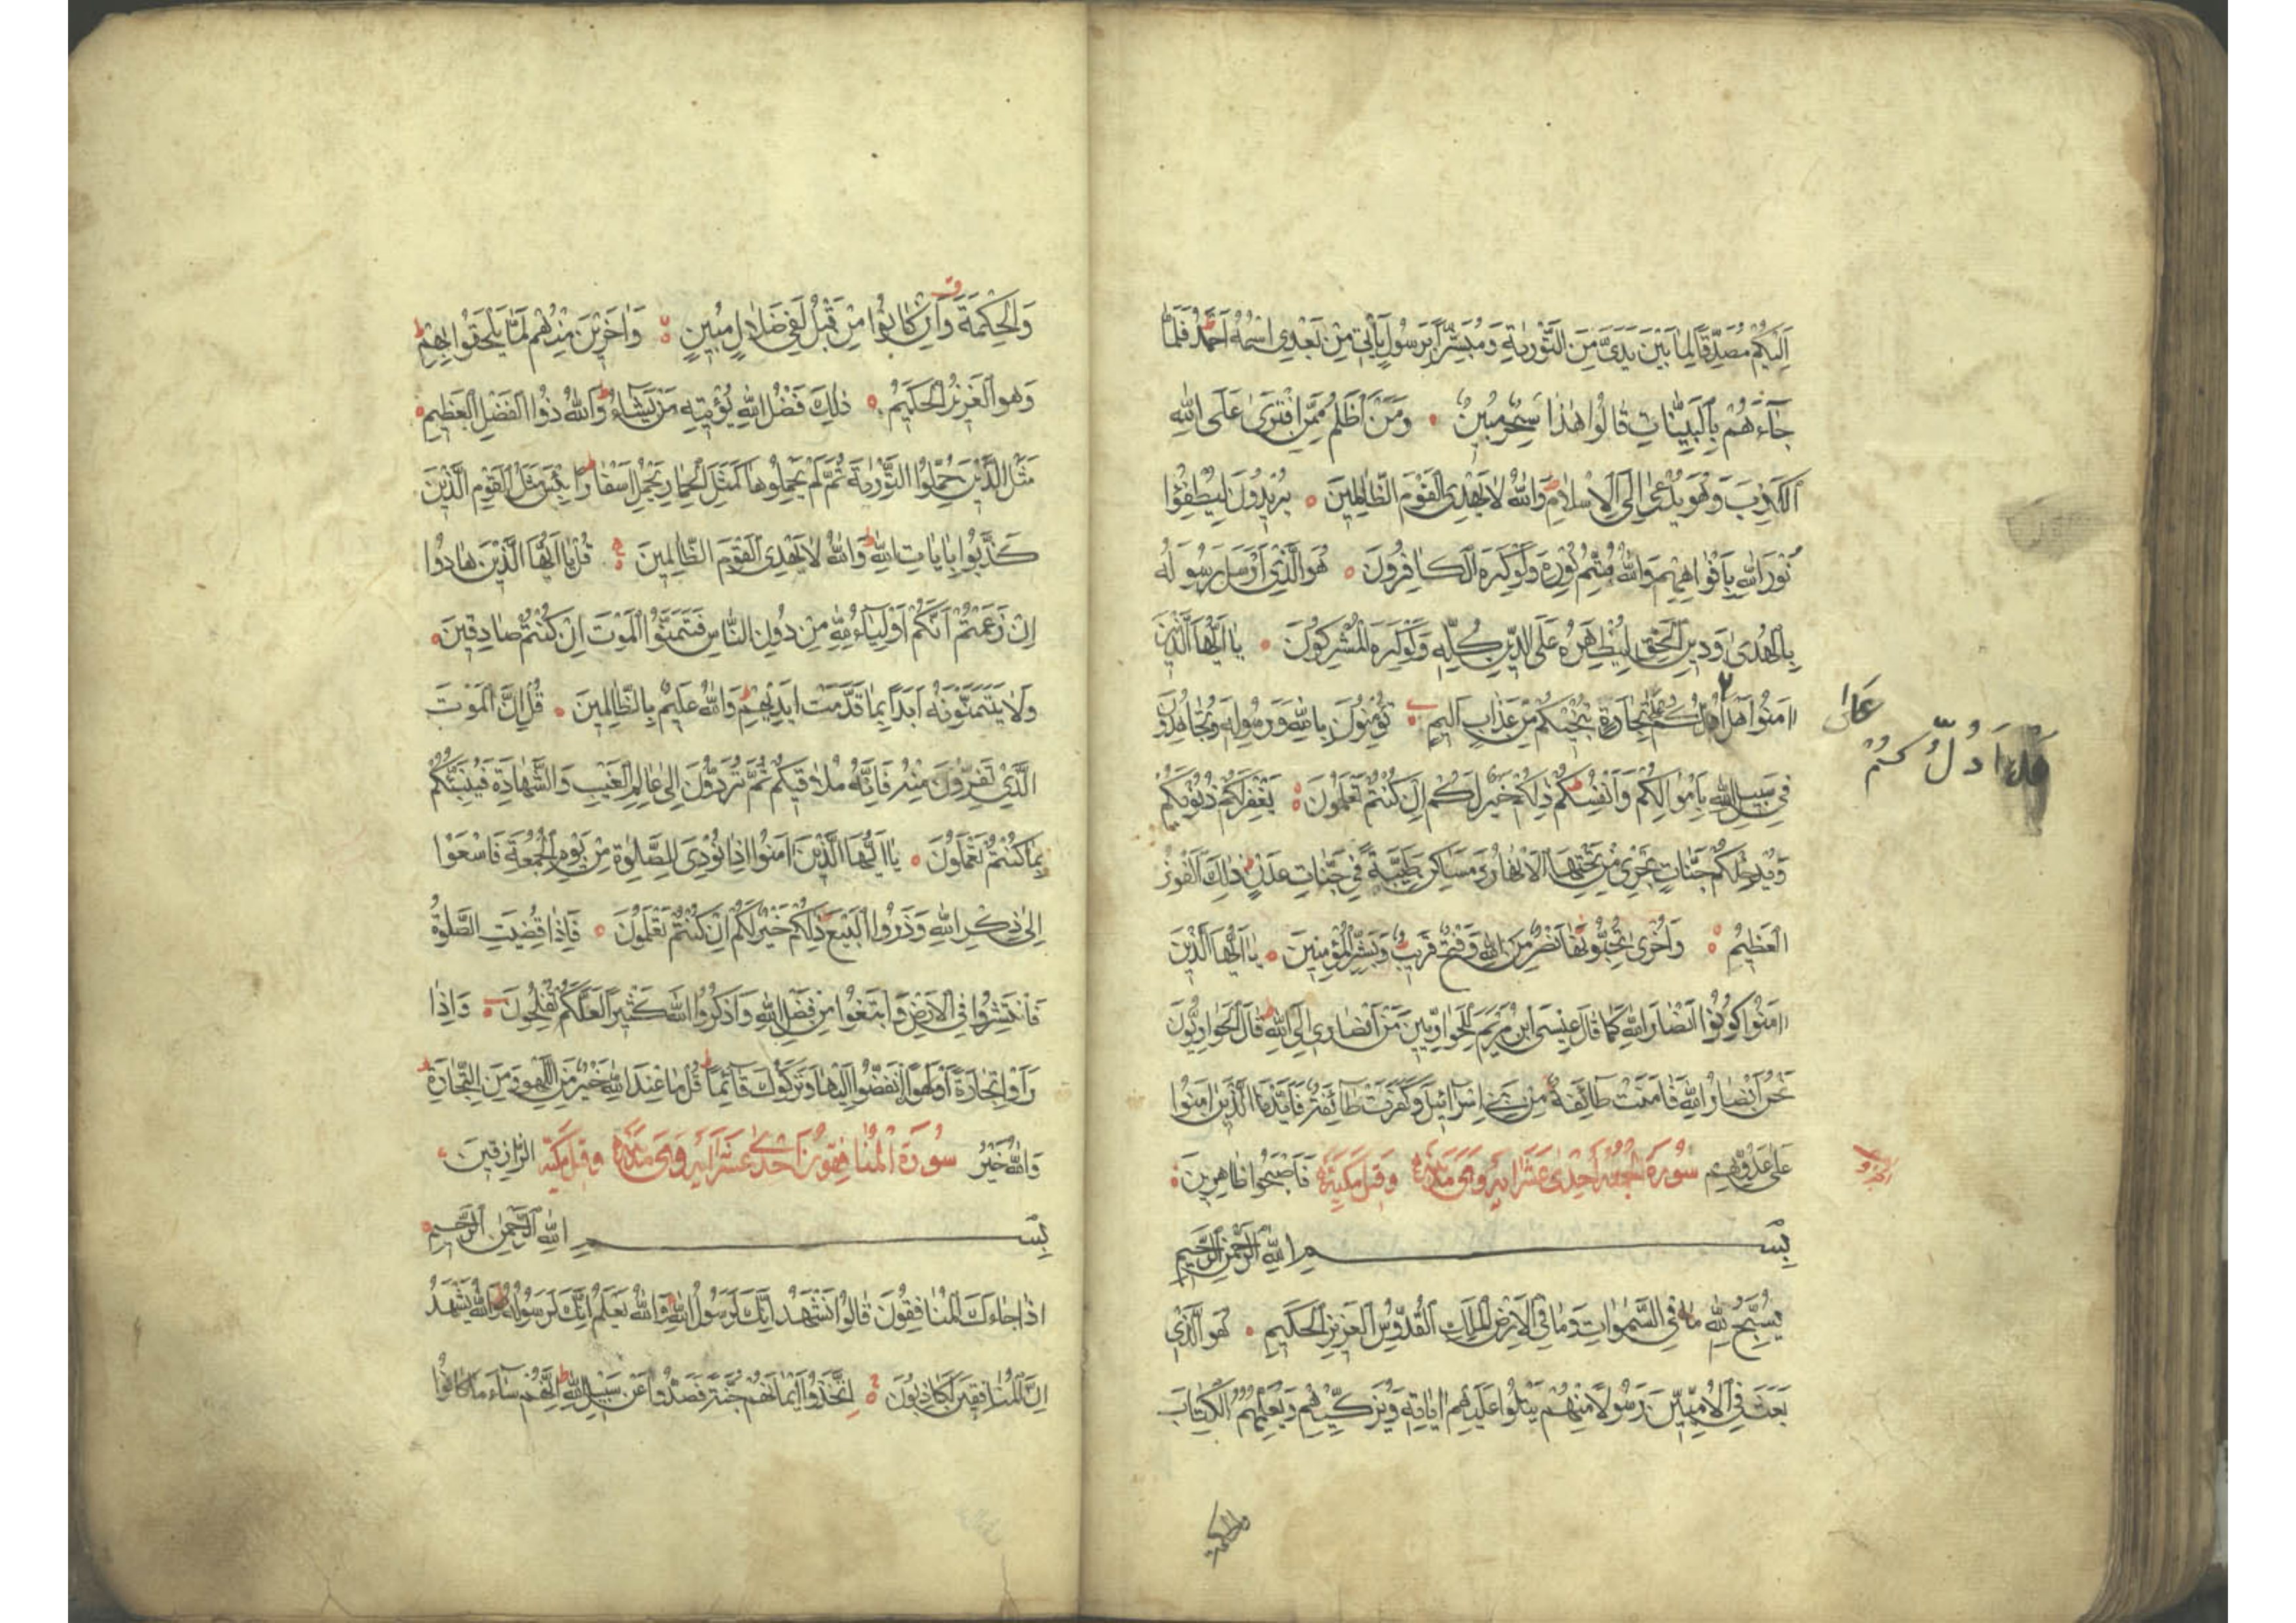 اِلَيْكُمْ مُصَدِّقًا لِمَا بَيْنَ يَدَيَّ مِنَ التَّوْرٰيةِ وَمُبَشِّرًا بِرَسُولٍ يَأْتِي مِنْ بَعْدِي اسْمُهُ اَحْمَدُ ط فَلَمَّا
جَآءَهُمْ بِالْبَيِّنَاتِ قَالُوا هٰذَا سِحْرٌ مُبِينٌ ۰ وَمَنْ اَظْلَمُ مِمَّنِ افْتَرٰى عَلَى اللّٰهِ
الْكَذِبَ وَهُوَ يُدْعٰى اِلَى الْاِسْلَامِ ط وَاللّٰهُ لَا يَهْدِي الْقَوْمَ الظَّالِمِينَ ۰ يُرِيدُونَ لِيُطْفِئُوا
نُورَ اللّٰهِ بِاَفْوَاهِهِمْ وَاللّٰهُ مُتِمُّ نُورِهِ وَلَوْ كَرِهَ الْكَافِرُونَ ۰ هُوَ الَّذِي اَرْسَلَ رَسُولَهُ
بِالْهُدٰى وَدِينِ الْحَقِّ لِيُظْهِرَهُ عَلَى الدِّينِ كُلِّهِ وَلَوْ كَرِهَ الْمُشْرِكُونَ ۰ يَا اَيُّهَا الَّذِينَ
اٰمَنُوا هَلْ اَدُلُّكُمْ عَلٰى تِجَارَةٍ تُنْجِيكُمْ مِنْ عَذَابٍ اَلِيمٍ ۰ تُؤْمِنُونَ بِاللّٰهِ وَرَسُولِهِ وَتُجَاهِدُونَ
عَلٰى
هَلْ اَدُلُّ كُمْ
فِي سَبِيلِ اللّٰهِ بِاَمْوَالِكُمْ وَاَنْفُسِكُمْ ط ذٰلِكُمْ خَيْرٌ لَكُمْ اِنْ كُنْتُمْ تَعْلَمُونَ ۰ يَغْفِرْ لَكُمْ ذُنُوبَكُمْ
وَيُدْخِلْكُمْ جَنَّاتٍ تَجْرِي مِنْ تَحْتِهَا الْاَنْهَارُ وَمَسَاكِنَ طَيِّبَةً فِي جَنَّاتِ عَدْنٍ ط ذٰلِكَ الْفَوْزُ
الْعَظِيمُ ۰ وَاُخْرٰى تُحِبُّونَهَا نَصْرٌ مِنَ اللّٰهِ وَفَتْحٌ قَرِيبٌ ط وَبَشِّرِ الْمُؤْمِنِينَ ۰ يَا اَيُّهَا الَّذِينَ
اٰمَنُوا كُونُوا اَنْصَارَ اللّٰهِ كَمَا قَالَ عِيسَى ابْنُ مَرْيَمَ لِلْحَوَارِيِّينَ مَنْ اَنْصَارِي اِلَى اللّٰهِ ط قَالَ الْحَوَارِيُّونَ
نَحْنُ اَنْصَارُ اللّٰهِ فَاٰمَنَتْ طَآئِفَةٌ مِنْ بَنِي اِسْرَائِيلَ وَكَفَرَتْ طَآئِفَةٌ فَاَيَّدْنَا الَّذِينَ اٰمَنُوا
عَلٰى عَدُوِّهِمْ فَاَصْبَحُوا ظَاهِرِينَ ۰ سُورَةُ الْجُمُعَةِ اِحْدٰى عَشَرَ اٰيَةً وَهِيَ مَدَنِيَّةٌ وَقِيلَ مَكِّيَّةٌ
بِسْمِ اللّٰهِ الرَّحْمٰنِ الرَّحِيمِ
يُسَبِّحُ لِلّٰهِ مَا فِي السَّمٰوَاتِ وَمَا فِي الْاَرْضِ الْمَلِكِ الْقُدُّوسِ الْعَزِيزِ الْحَكِيمِ ۰ هُوَ الَّذِي
بَعَثَ فِي الْاُمِّيِّينَ رَسُولًا مِنْهُمْ يَتْلُوا عَلَيْهِمْ اٰيَاتِهِ وَيُزَكِّيهِمْ وَيُعَلِّمُهُمُ الْكِتَابَ
والحكمة
وَالْحِكْمَةَ وَاِنْ كَانُوا مِنْ قَبْلُ لَفِي ضَلَالٍ مُبِينٍ ۰ وَاٰخَرِينَ مِنْهُمْ لَمَّا يَلْحَقُوا بِهِمْ ط
وَهُوَ الْعَزِيزُ الْحَكِيمُ ۰ ذٰلِكَ فَضْلُ اللّٰهِ يُؤْتِيهِ مَنْ يَشَآءُ ط وَاللّٰهُ ذُوا الْفَضْلِ الْعَظِيمِ ۰
مَثَلُ الَّذِينَ حُمِّلُوا التَّوْرٰيةَ ثُمَّ لَمْ يَحْمِلُوهَا كَمَثَلِ الْحِمَارِ يَحْمِلُ اَسْفَارًا ط بِئْسَ مَثَلُ الْقَوْمِ الَّذِينَ
كَذَّبُوا بِاٰيَاتِ اللّٰهِ ط وَاللّٰهُ لَا يَهْدِي الْقَوْمَ الظَّالِمِينَ ۰ قُلْ يَا اَيُّهَا الَّذِينَ هَادُوا
اِنْ زَعَمْتُمْ اَنَّكُمْ اَوْلِيَآءُ لِلّٰهِ مِنْ دُونِ النَّاسِ فَتَمَنَّوُا الْمَوْتَ اِنْ كُنْتُمْ صَادِقِينَ ۰
وَلَا يَتَمَنَّوْنَهُ اَبَدًا بِمَا قَدَّمَتْ اَيْدِيهِمْ ط وَاللّٰهُ عَلِيمٌ بِالظَّالِمِينَ ۰ قُلْ اِنَّ الْمَوْتَ
الَّذِي تَفِرُّونَ مِنْهُ فَاِنَّهُ مُلَاقِيكُمْ ثُمَّ تُرَدُّونَ اِلٰى عَالِمِ الْغَيْبِ وَالشَّهَادَةِ فَيُنَبِّئُكُمْ
بِمَا كُنْتُمْ تَعْمَلُونَ ۰ يَا اَيُّهَا الَّذِينَ اٰمَنُوا اِذَا نُودِيَ لِلصَّلٰوةِ مِنْ يَوْمِ الْجُمُعَةِ فَاسْعَوْا
اِلٰى ذِكْرِ اللّٰهِ وَذَرُوا الْبَيْعَ ط ذٰلِكُمْ خَيْرٌ لَكُمْ اِنْ كُنْتُمْ تَعْلَمُونَ ۰ فَاِذَا قُضِيَتِ الصَّلٰوةُ
فَانْتَشِرُوا فِي الْاَرْضِ وَابْتَغُوا مِنْ فَضْلِ اللّٰهِ وَاذْكُرُوا اللّٰهَ كَثِيرًا لَعَلَّكُمْ تُفْلِحُونَ ۰ وَاِذَا
رَاَوْا تِجَارَةً اَوْ لَهْوًا انْفَضُّوا اِلَيْهَا وَتَرَكُوكَ قَآئِمًا ط قُلْ مَا عِنْدَ اللّٰهِ خَيْرٌ مِنَ اللَّهْوِ وَمِنَ التِّجَارَةِ ط
وَاللّٰهُ خَيْرُ الرَّازِقِينَ ۰ سُورَةُ الْمُنَافِقُونَ اِحْدٰى عَشَرَ اٰيَةً وَهِيَ مَدَنِيَّةٌ وَقِيلَ مَكِّيَّةٌ
بِسْمِ اللّٰهِ الرَّحْمٰنِ الرَّحِيمِ ۰
اِذَا جَاءَكَ الْمُنَافِقُونَ قَالُوا نَشْهَدُ اِنَّكَ لَرَسُولُ اللّٰهِ وَاللّٰهُ يَعْلَمُ اِنَّكَ لَرَسُولُهُ ط وَاللّٰهُ يَشْهَدُ
اِنَّ الْمُنَافِقِينَ لَكَاذِبُونَ ۰ اِتَّخَذُوا اَيْمَانَهُمْ جُنَّةً فَصَدُّوا عَنْ سَبِيلِ اللّٰهِ ط اِنَّهُمْ سَآءَ مَا كَانُوا